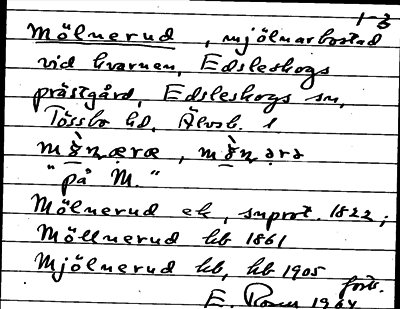 1-3
Mölnerud, mjölnarbostad
vid kvarnen, Edsleskogs
prästgård, Edsleskogs sn,
Tössbo hd, Älvsb. l
"på M."
Mölnerud ek, snprot. 1822;
Möllnerud hb 1861
Mjölnerud hb, hb 1905
forts.
E. 1964